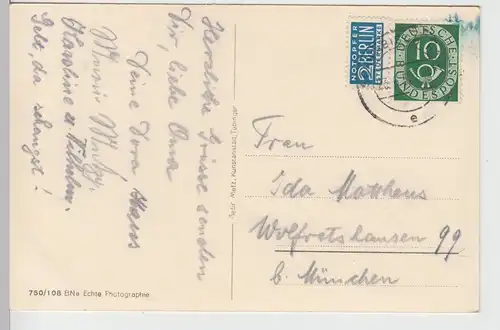 Herzliche Grüsse senden
Dir, liebe Oma
Deine Vera Hans
Karoline u Wilhelm.
Gelt, da schaugst!
750/108 BNe Echte Photographie
Gebr. Metz, Kunstanstalt, Tübingen
NOTOPFER
2 BERLIN
STEUERMARKE
DEUTSCHE
BUNDESPOST
10
e
Frau
Ida Matthaus
Wolfratshausen 99
b. München